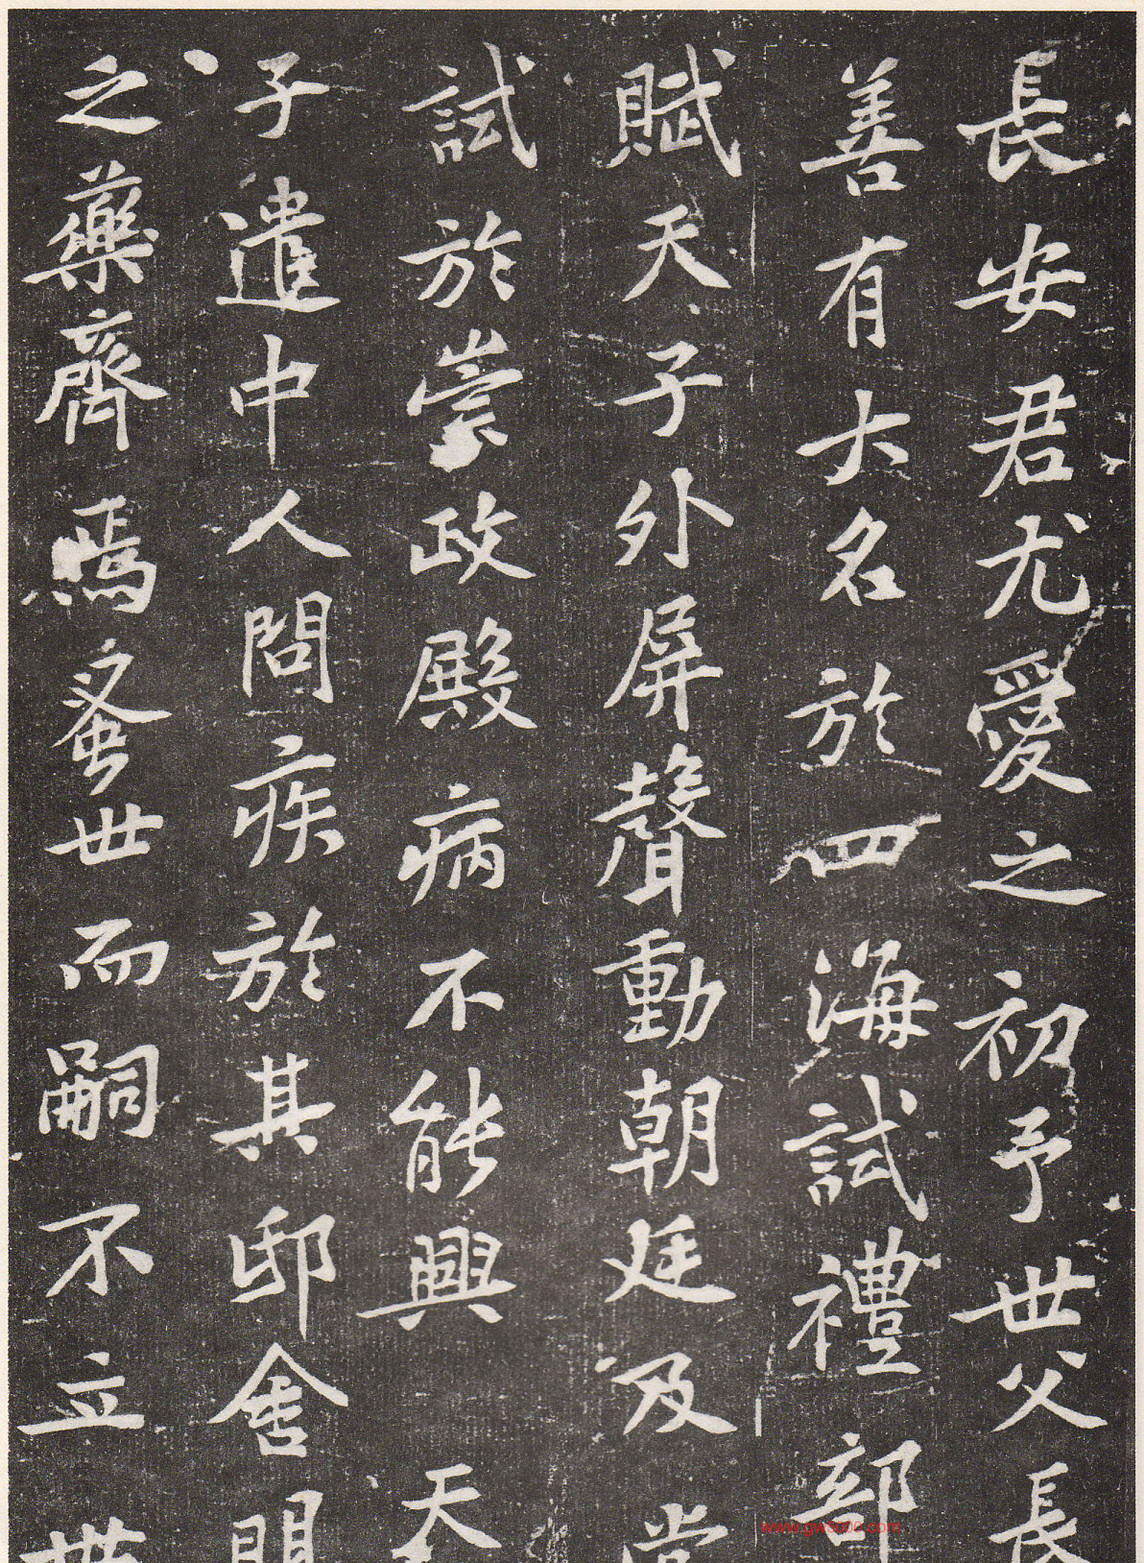 長安君尤愛之初予世父長
善有大名於四海試禮部
賦天子外屏聲動朝廷及當
試於崇政殿病不能興天
子遣中人問疾於其邸舍問
之藥齊焉蚤世而嗣不立世
www.gw5000.com